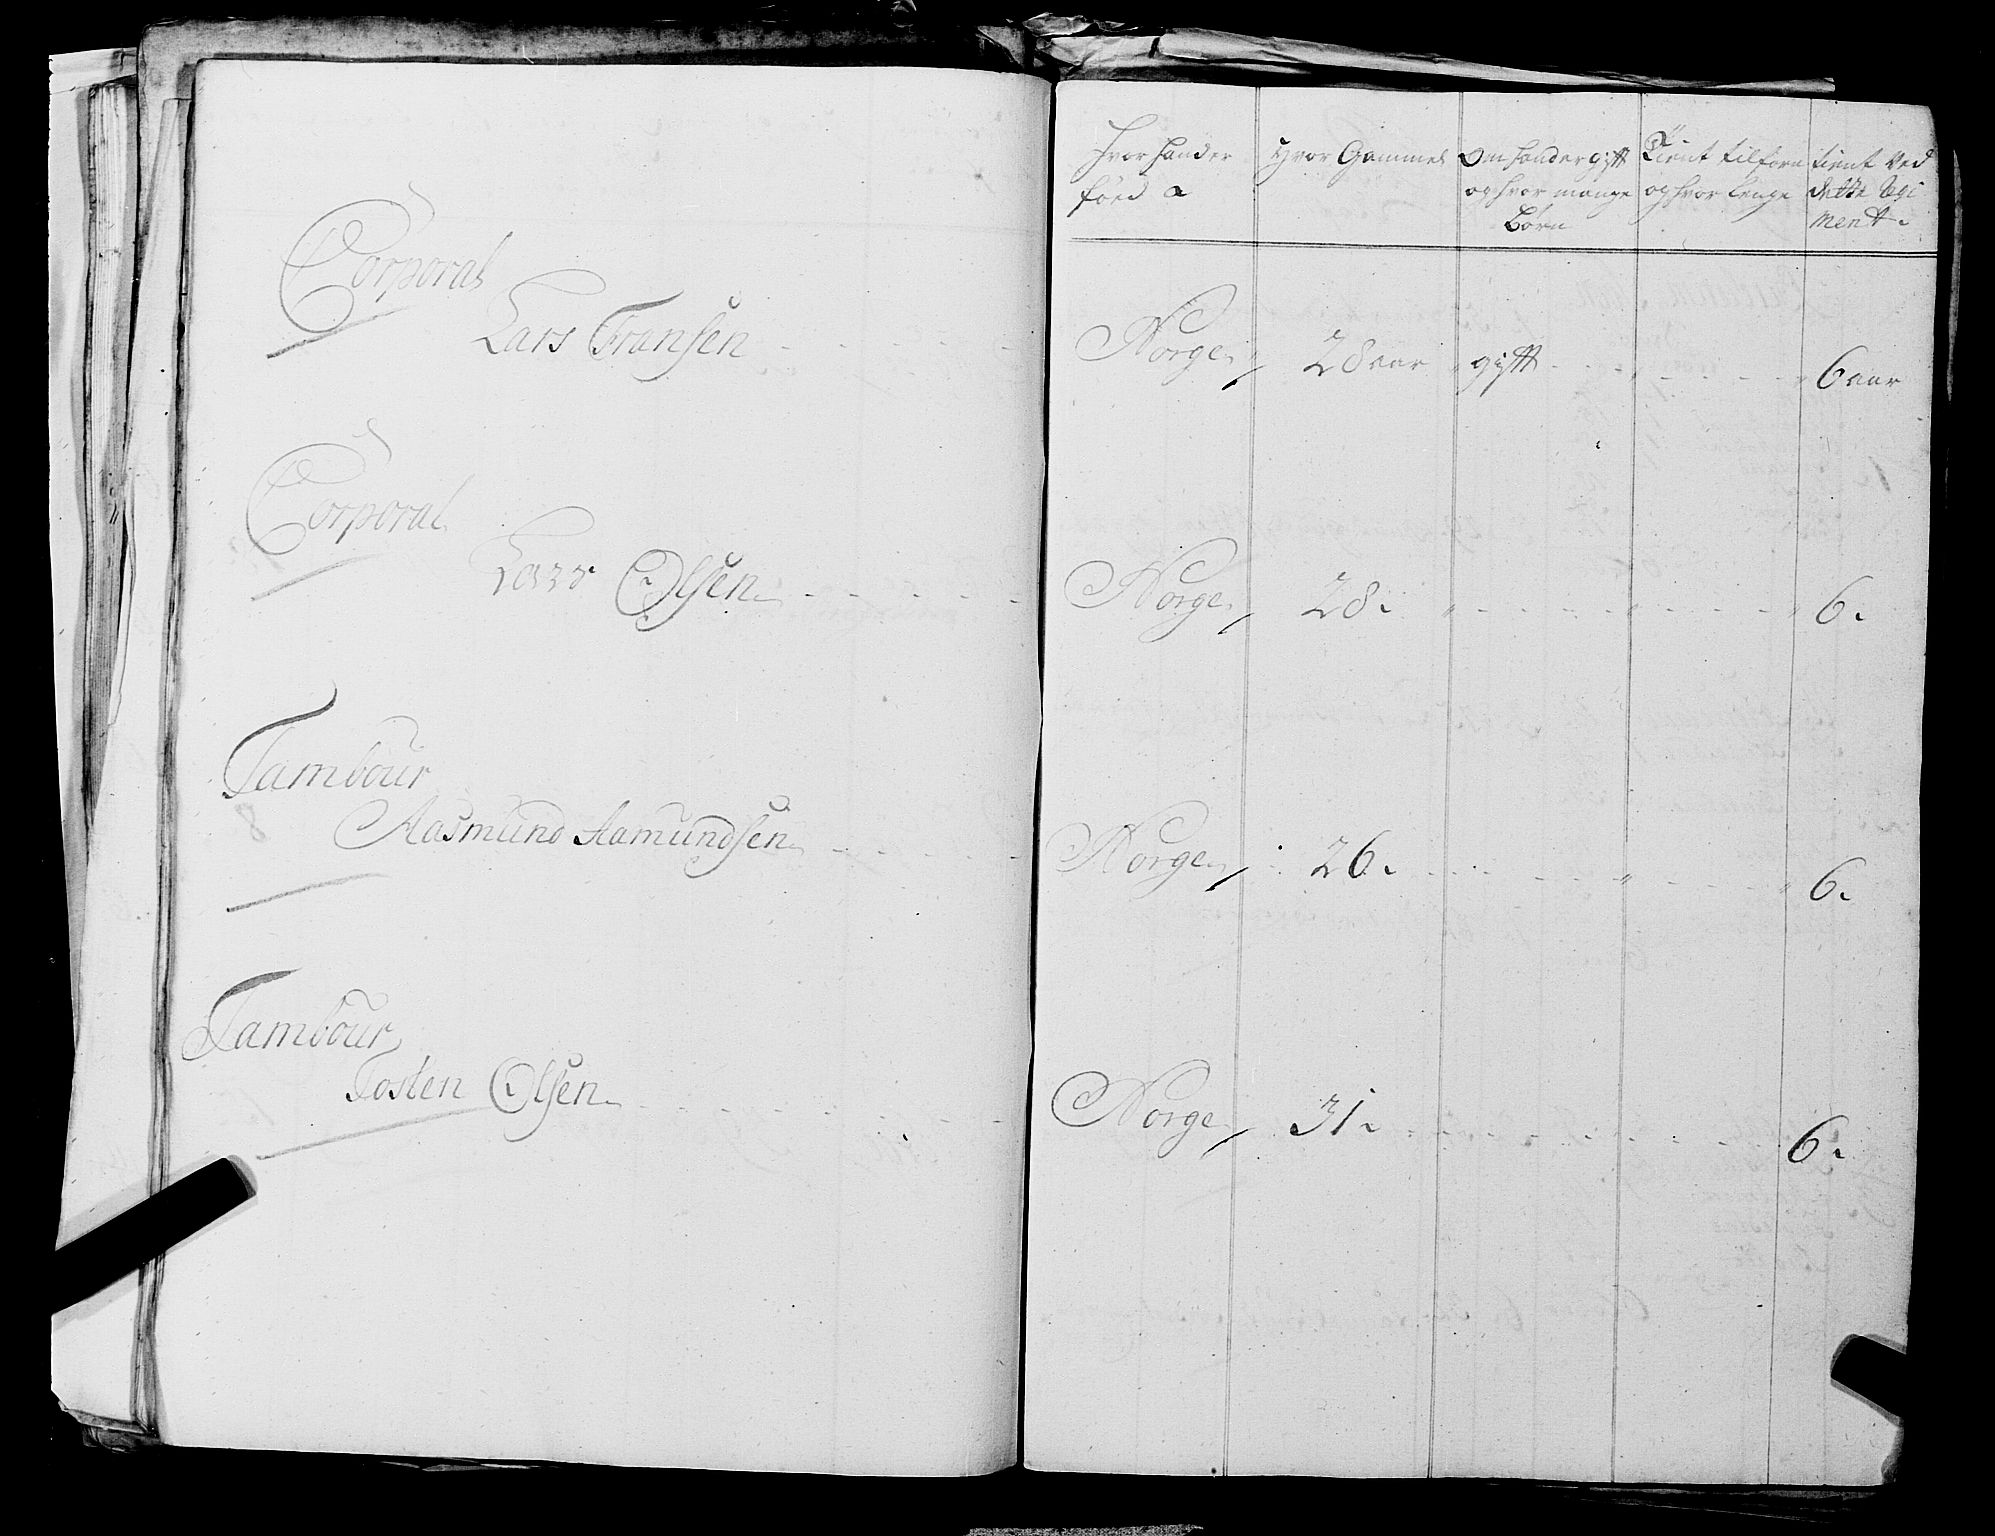 Corporal
Lars Fransen
Corporal
Lars Olsen
Tambour
Aasmund Aamundsen
Tambour
Tosten Olsen
Hvor hand er
føed
Hvor Gammel
Om hand er gift
og hvor mange
Børn
Tient tilforn
og hvor lenge
tient ved
dette Regi
ment.
Norge 28 aar gift 6 aar
Norge 28. 6.
Norge 26. 6.
Norge 31. 6.